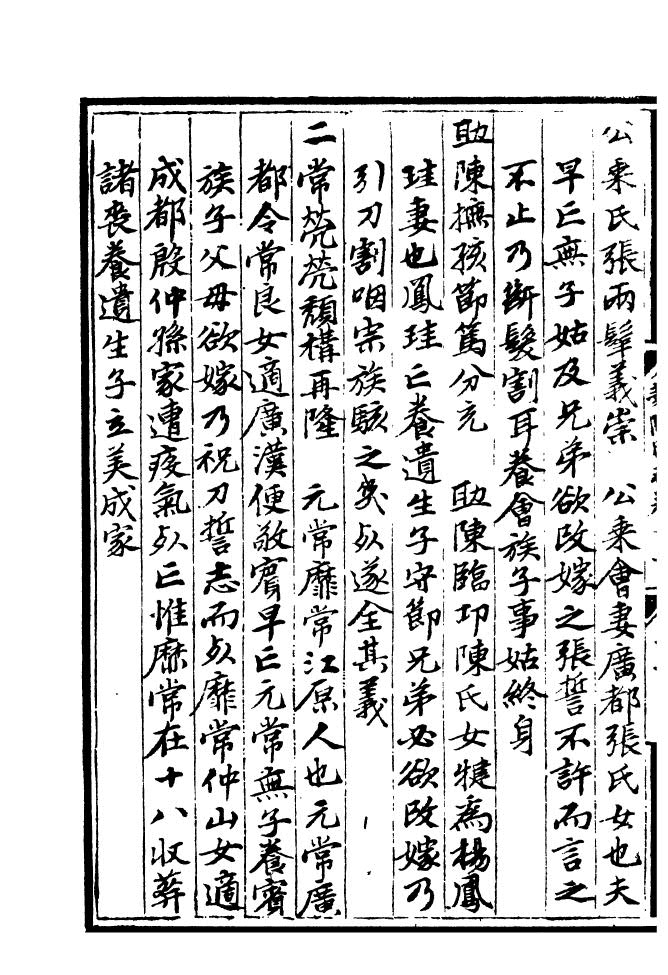 公乘氏張兩髦義崇　公乘會妻廣都張氏女也夫
早亡無子姑及兄弟欲改嫁之張誓不許而言之
不止乃斷髮割耳養會族子事姑終身
助陳撫孩節篤分充　助陳臨邛陳氏女犍為楊鳳
珪妻也鳳珪亡養遺生子守節兄弟必欲改嫁乃
引刀割咽宗族駭之幾死遂全其義
二常煢煢頹構再隆　元常靡常江原人也元常廣
都令常良女適廣漢便敬賓早亡元常無子養賓
族子父母欲嫁乃祝刀誓志而死靡常仲山女適
成都殷仲孫家遭疫氣死亡惟靡常在十八收葬
諸喪養遺生子立美成家